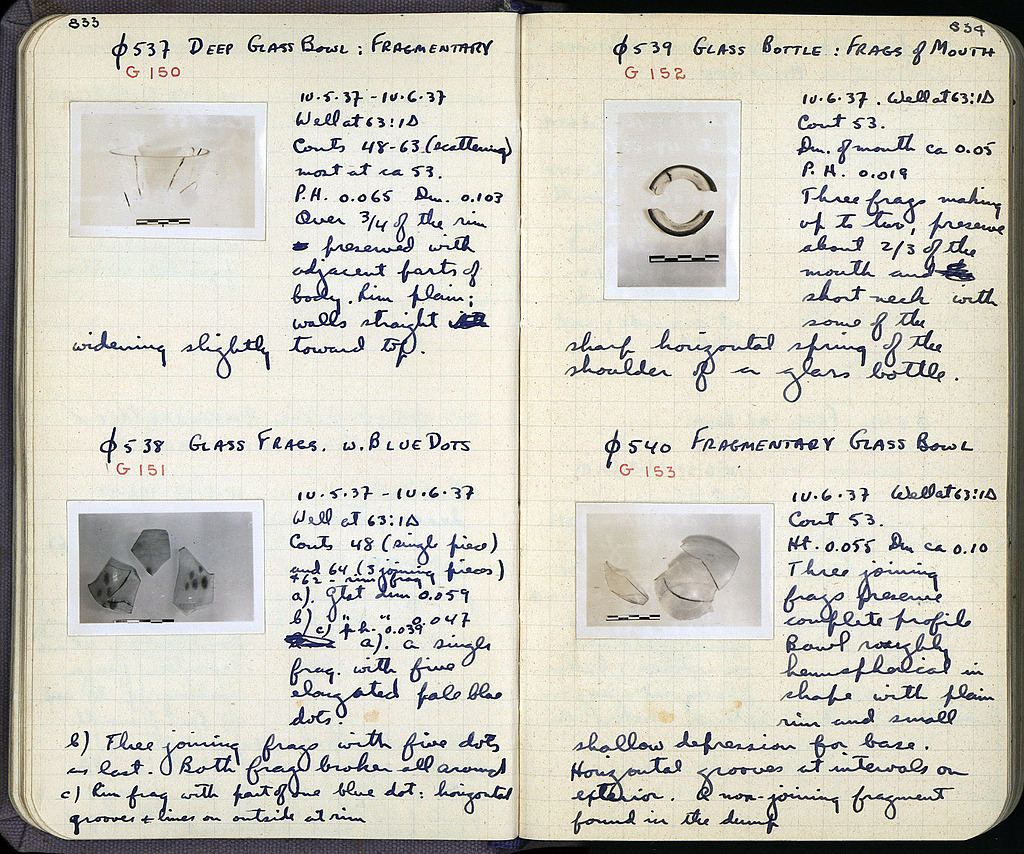 833
φ537 DEEP GLASS BOWL : FRAGMENTARY
G 150
IV.5.37 - IV.6.37
Well at 63:ΙΔ
Conts 48-63 (scattering)
most at ca 53.
P.H. 0.065 Dm. 0.103
Over 3/4 of the rim
preserved with
adjacent parts of
body. Rim plain;
walls straight
widening slightly toward top.
φ538 GLASS FRAGS. W. BLUE DOTS
G 151
IV.5.37 - IV.6.37
Well at 63:ΙΔ
Conts 48 (single piece)
and 64 (3 joining pieces)
+62 - rim frag
a). Gtst dim 0.059
b) " " 0.047
c) p.h. 0.039
a). A single
frag. with five
elongated pale blue
dots.
b) Three joining frags with five dots
as last. Both frags broken all around
c) Rim frag with part of one blue dot: horizontal
grooves + lines on outside at rim
834
φ539 GLASS BOTTLE : FRAGS of MOUTH
G 152
IV.6.37. Well at 63:ΙΔ
Cont 53.
Dm. of mouth ca 0.05
P. H. 0.019
Three frags making
up to two, preserve
about 2/3 of the
mouth and
short neck with
some of the
sharp horizontal spring of the
shoulder of a glass bottle.
φ540 FRAGMENTARY GLASS BOWL
G 153
IV.6.37 Well at 63:ΙΔ
Cont 53.
Ht. 0.055 Dm ca 0.10
Three joining
frags preserve
complete profile
Bowl roughly
hemispherical in
shape with plain
rim and small
shallow depression for base.
Horizontal grooves at intervals on
exterior. A non-joining fragment
found in the dump